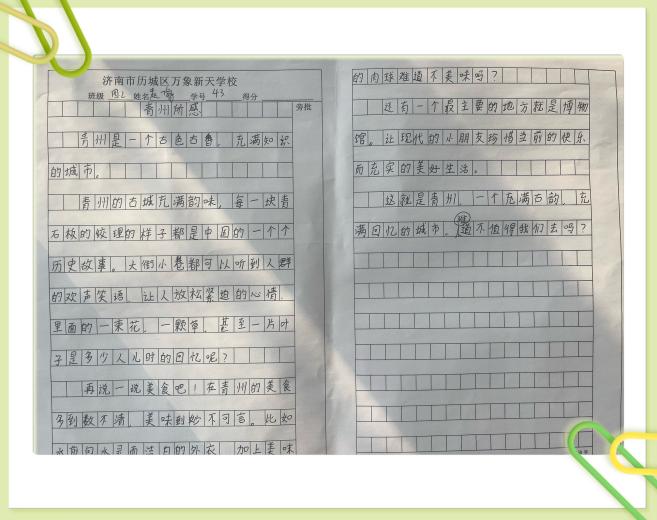 济南市历城区万象新天学校
班级 姓名 学号 43 得分
青州所感
旁批
青州是一个古色古香，充满知识
的城市。
青州的古城充满韵味，每一块青
石板的纹理的样子都是中国的一个个
历史故事。大街小巷都可以听到人群
的欢声笑语，让人放松紧迫的心情，
里面的一束花，一颗草，甚至一片叶
子是多少人儿时的回忆呢？
再说一说美食吧！在青州的美食
多到数不清，美味到妙不可言。比如
的外衣，加上美味
的肉球难道不美味吗？
还有一个最主要的地方就是博物
馆，让现代的小朋友珍惜当前的快乐
而充实的美好生活。
这就是青州，一个充满古韵，充
满回忆的城市，难道不值得我们去吗？